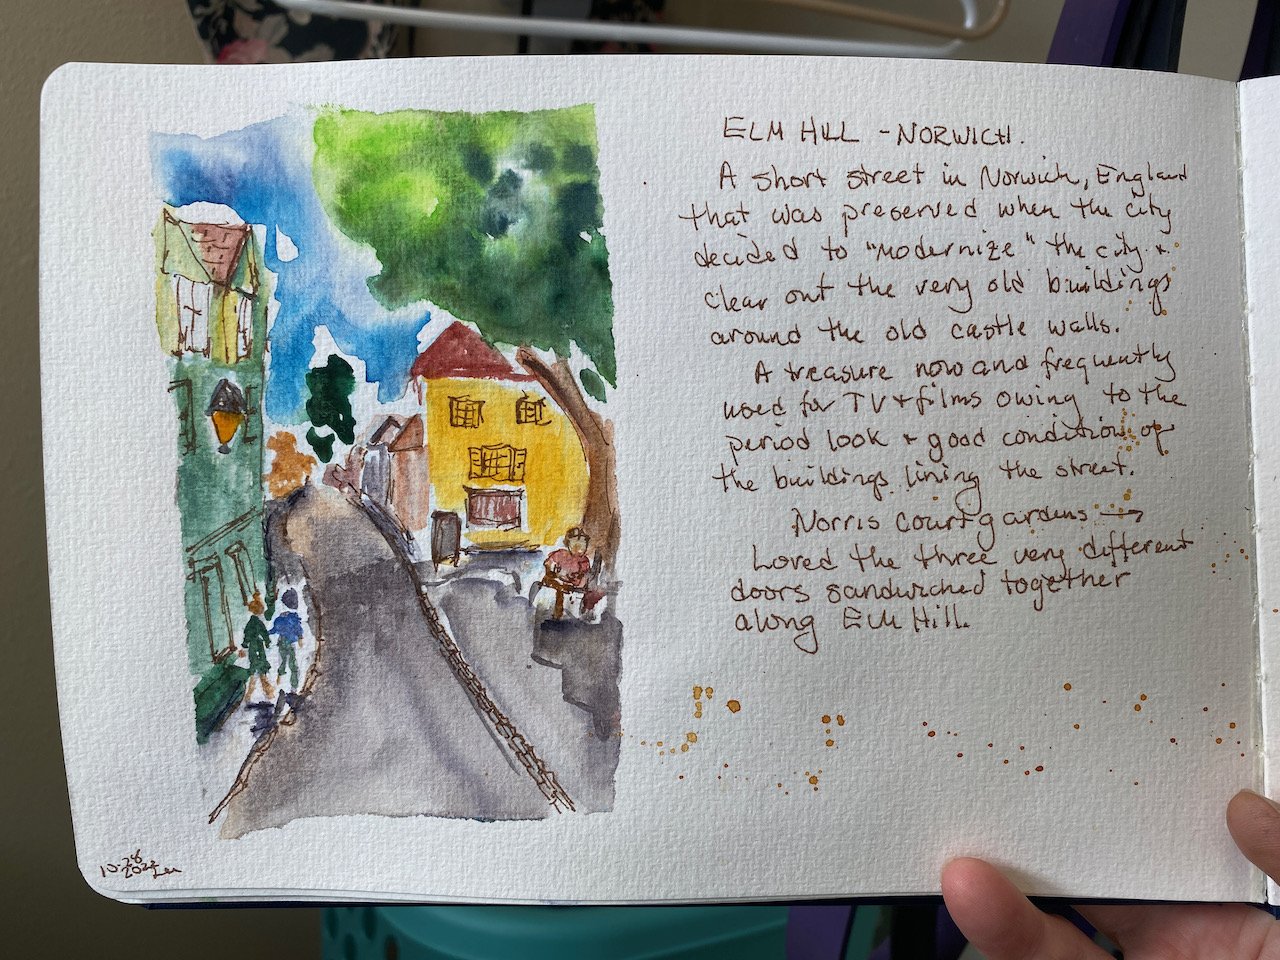 ELM HILL - NORWICH.
A short street in Norwich, England
that was preserved when the city
decided to "modernize" the city &
clear out the very old buildings
around the old castle walls.
A treasure now and frequently
used for TV & films owing to the
period look & good condition of
the buildings lining the street.
Norris Court gardens →
Loved the three very different
doors sandwiched together
along Elm Hill.
10-28